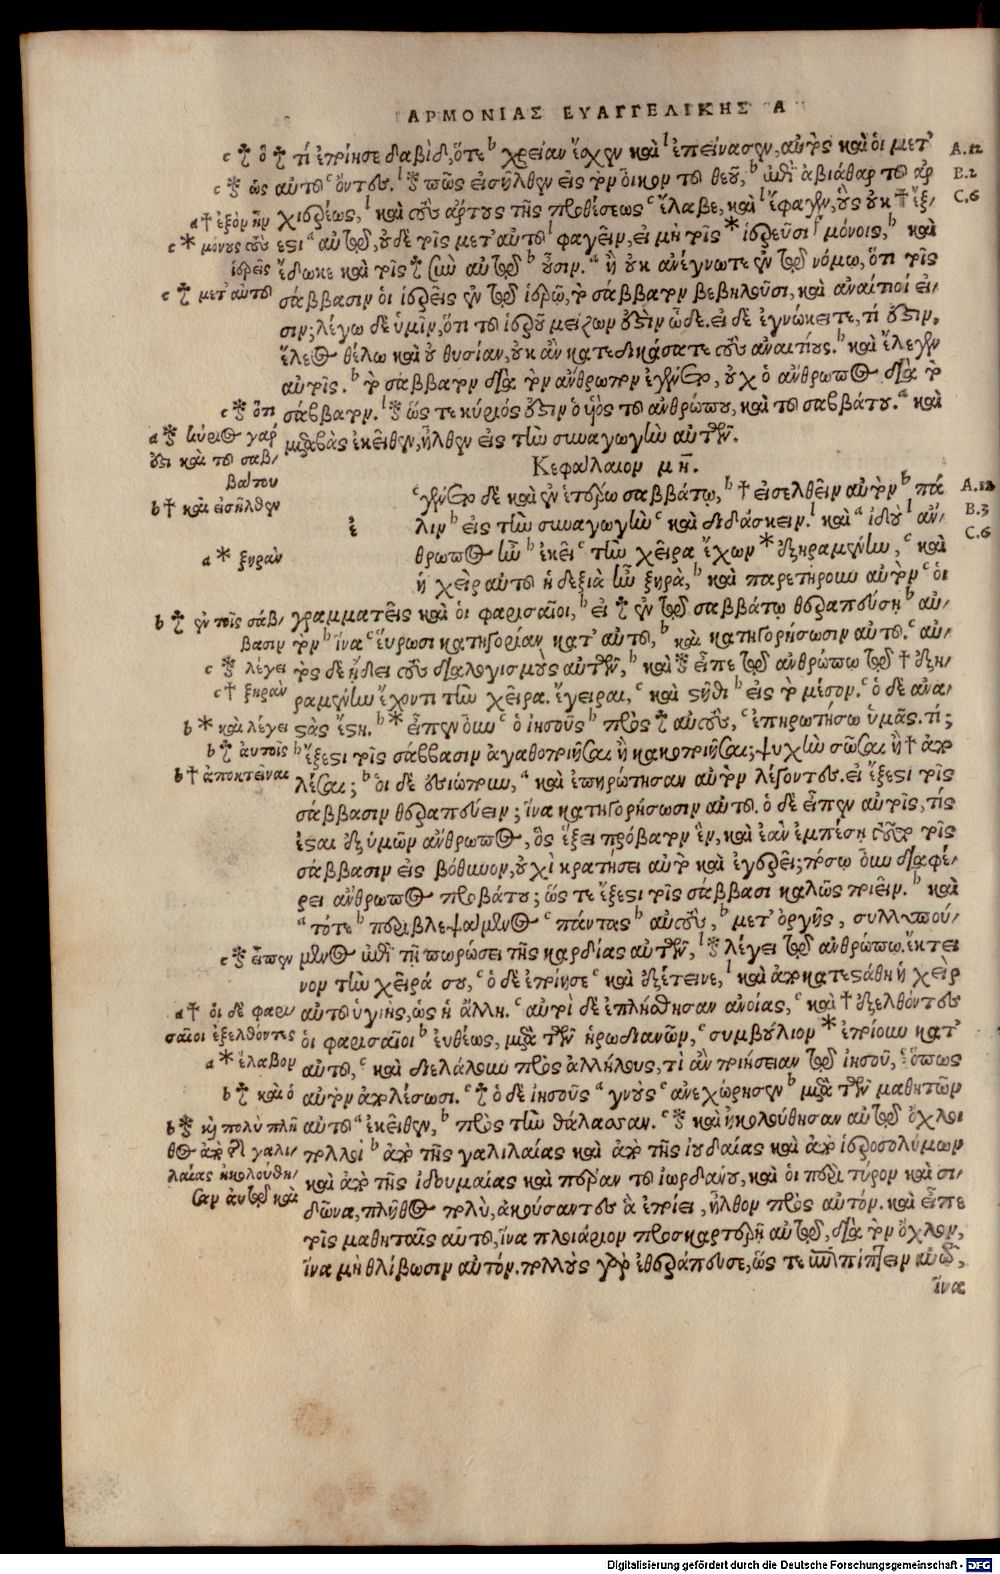 ΑΡΜΟΝΙΑΣ ΕΥΑΓΓΕΛΙΚΗΣ Α
c ☨ ὃ ☨ τί ἐποίησε δαβὶδ, ὅτε ᵇ χρείαν ἔσχεν καὶ ˡ ἐπείνασεν, αὐτὸς καὶ οἱ μετ' A.12
c ⁕ ὡς αὐτοῦ ᶜ ὄντες. ˡ ⁕ πῶς εἰσῆλθεν εἰς τὸν οἶκον τοῦ θεοῦ, ᵇ ἐπὶ ἀβιάθαρ τοῦ ἀρ B.2
a † ἐξὸν ἦν χιερέως, ˡ καὶ τοὺς ἄρτους τῆς προθέσεως ᶜ ἔλαβε, καὶ ˡ ἔφαγεν, οὓς οὐκ † ἔξ- C.6
c * μόνους τοὺς εστι ᵃ αὐτῷ, οὐδὲ τοῖς μετ' αὐτοῦ ˡ φαγεῖν, εἰ μὴ τοῖς * ἱερεῦσι ˡ μόνοις, ᵇ καὶ
ἱερεῖς ἔδωκε καὶ τοῖς ☨ σὺν αὐτῷ ᵇ οὖσιν. ᵃ ἢ οὐκ ἀνέγνωτε ἐν τῷ νόμῳ, ὅτι τοῖς
c ☨ μετ' αὐτοῦ σάββασιν οἱ ἱερεῖς ἐν τῷ ἱερῷ, τὸ σάββατον βεβηλοῦσι, καὶ ἀναίτιοί εἰ-
σιν; λέγω δὲ ὑμῖν, ὅτι τοῦ ἱεροῦ μείζων ἐστὶν ὧδε. εἰ δὲ ἐγνώκειτε, τί ἐστιν,
ἔλεος θέλω καὶ οὐ θυσίαν, οὐκ ἂν κατεδικάσατε τοὺς ἀναιτίους. ᵇ καὶ ἔλεγεν
αὐτοῖς. ᵇ τὸ σάββατον διὰ τὸν ἄνθρωπον ἐγένετο, οὐχ ὁ ἄνθρωπος διὰ τὸ
c ⁕ ὅτι σάββατον. ˡ ⁕ ὥς τε κύριός ἐστιν ὁ υἱὸς τοῦ ἀνθρώπου, καὶ τοῦ σαββάτου. ᵃ καὶ
a ⁕ κύριος γάρ μεταβὰς ἐκεῖθεν, ἦλθεν εἰς τὴν συναγωγὴν αὐτῶν.
ἐστι καὶ τοῦ σαβ-
βάτου
Κεφάλαιον μη.
b † καὶ εἰσῆλθεν
ἐ ᶜ γένετο δὲ καὶ ἐν ἑτέρῳ σαββάτῳ, ᵇ † εἰσελθεῖν αὐτὸν ᵇ πά A.12
λιν ᵇ εἰς τὴν συναγωγὴν ᶜ καὶ διδάσκειν. ˡ καὶ ᵃ ἰδοὺ ˡ ἄν- B.3
a * ξηρὰν θρωπος ἦν ᵇ ἐκεῖ ᶜ τὴν χεῖρα ἔχων * ἐξηραμένην, ᶜ καὶ C.6
ἡ χεὶρ αὐτοῦ ἡ δεξιὰ ἦν ξηρὰ, ᵇ καὶ παρετήρουν αὐτὸν ᶜ οἱ
b ☨ ἐν τοῖς σάβ- γραμματεῖς καὶ οἱ φαρισαῖοι, ᵇ εἰ ☨ ἐν τῷ σαββάτῳ θεραπεύσῃ ᵇ αὐ-
βασιν τὸν ᵇ ἵνα ᶜ εὕρωσι κατηγορίαν κατ' αὐτοῦ, ᵇ καὶ κατηγορήσωσιν αὐτοῦ. ᶜ αὐ-
c ⁕ λέγει τὸς δὲ ᾔδει τοὺς διαλογισμοὺς αὐτῶν, ᵇ καὶ ⁕ εἶπε τῷ ἀνθρώπῳ τῷ † ἐξη-
c † ξηρὰν ραμένην ἔχοντι τὴν χεῖρα. ἔγειραι, ᶜ καὶ στῆθι ᵇ εἰς τὸ μέσον. ᶜ ὁ δὲ ἀνα-
b * καὶ λέγει στὰς ἔστη. ᵇ * εἶπεν οὖν ᶜ ὁ ἰησοῦς ᵇ πρὸς ☨ αὐτοὺς, ᶜ ἐπηρωτήσω ὑμᾶς. τί;
b ☨ αὐτοῖς ᵇ ἔξεστι τοῖς σάββασιν ἀγαθοποιῆσαι ἢ κακοποιῆσαι; ψυχὴν σῶσαι ἢ † ἀπο
b † ἀποκτεῖναι λέσαι; ᵇ οἱ δὲ ἐσιώπουν, ᵃ καὶ ἐπηρώτησαν αὐτὸν λέγοντες. εἰ ἔξεστι τοῖς
σάββασιν θεραπεύειν; ἵνα κατηγορήσωσιν αὐτοῦ. ὁ δὲ εἶπεν αὐτοῖς, τίς
ἔσται ἐξ ὑμῶν ἄνθρωπος, ὃς ἕξει πρόβατον ἓν, καὶ ἐὰν ἐμπέσῃ τοῦτο τοῖς
σάββασιν εἰς βόθυνον, οὐχὶ κρατήσει αὐτὸ καὶ ἐγερεῖ; πόσῳ οὖν διαφέ-
ρει ἄνθρωπος προβάτου; ὥς τε ἔξεστι τοῖς σάββασι καλῶς ποιεῖν. ᵇ καὶ
ᵃ τότε ᵇ περιβλεψάμενος ᶜ πάντας ᵇ αὐτοὺς, ᵇ μετ' ὀργῆς, συλλυπού-
c ⁕ εἶπεν μενος ἐπὶ τῇ πωρώσει τῆς καρδίας αὐτῶν, ˡ ⁕ λέγει τῷ ἀνθρώπῳ. ἔκτει
νον τὴν χεῖρά σου, ᶜ ὁ δὲ ἐποίησε ᶜ καὶ ἐξέτεινε, ˡ καὶ ἀποκατεστάθη ἡ χεὶρ
a † οἱ δὲ φαρι- αὐτοῦ ὑγιὴς, ὡς ἡ ἄλλη. ᶜ αὐτοὶ δὲ ἐπλήσθησαν ἀνοίας, ᶜ καὶ † ἐξελθόντες
σαῖοι ἐξελθόντες οἱ φαρισαῖοι ᵇ εὐθέως, μετὰ τῶν ἡρωδιανῶν, ᶜ συμβούλιον * ἐποίουν κατ'
a * ἔλαβον αὐτοῦ, ᶜ καὶ διελάλουν πρὸς ἀλλήλους, τί ἂν ποιήσειαν τῷ ἰησοῦ, ὅπως
b ☨ καὶ ὁ αὐτὸν ἀπολέσωσι. ᶜ ☨ ὁ δὲ ἰησοῦς ᵃ γνοὺς ᶜ ἀνεχώρησεν ᵇ μετὰ τῶν μαθητῶν
b ⁕ καὶ πολὺ πλῆ αὐτοῦ ᵃ ἐκεῖθεν, ᵇ πρὸς τὴν θάλασσαν. ᶜ ⁕ καὶ ἠκολούθησαν αὐτῷ ὄχλοι
θος ἀπὸ τῆς γαλι- πολλοὶ ᵇ ἀπὸ τῆς γαλιλαίας καὶ ἀπὸ τῆς ἰουδαίας καὶ ἀπὸ ἱεροσολύμων
λαίας ἠκολούθη- καὶ ἀπὸ τῆς ἰδουμαίας καὶ πέραν τοῦ ἰωρδάνου, καὶ οἱ περὶ τύρον καὶ σι-
σαν αὐτῷ καὶ δῶνα, πλῆθος πολὺ, ἀκούσαντες ἃ ἐποίει, ἦλθον πρὸς αὐτόν. καὶ εἶπε
τοῖς μαθηταῖς αὐτοῦ, ἵνα πλοιάριον προσκαρτερῇ αὐτῷ, διὰ τὸν ὄχλον,
ἵνα μὴ θλίβωσιν αὐτόν. πολλοὺς γὰρ ἐθεράπευσε, ὥς τε ἐπιπίπτειν αὐτῷ,
ἵνα
Digitalisierung gefördert durch die Deutsche Forschungsgemeinschaft - DFG